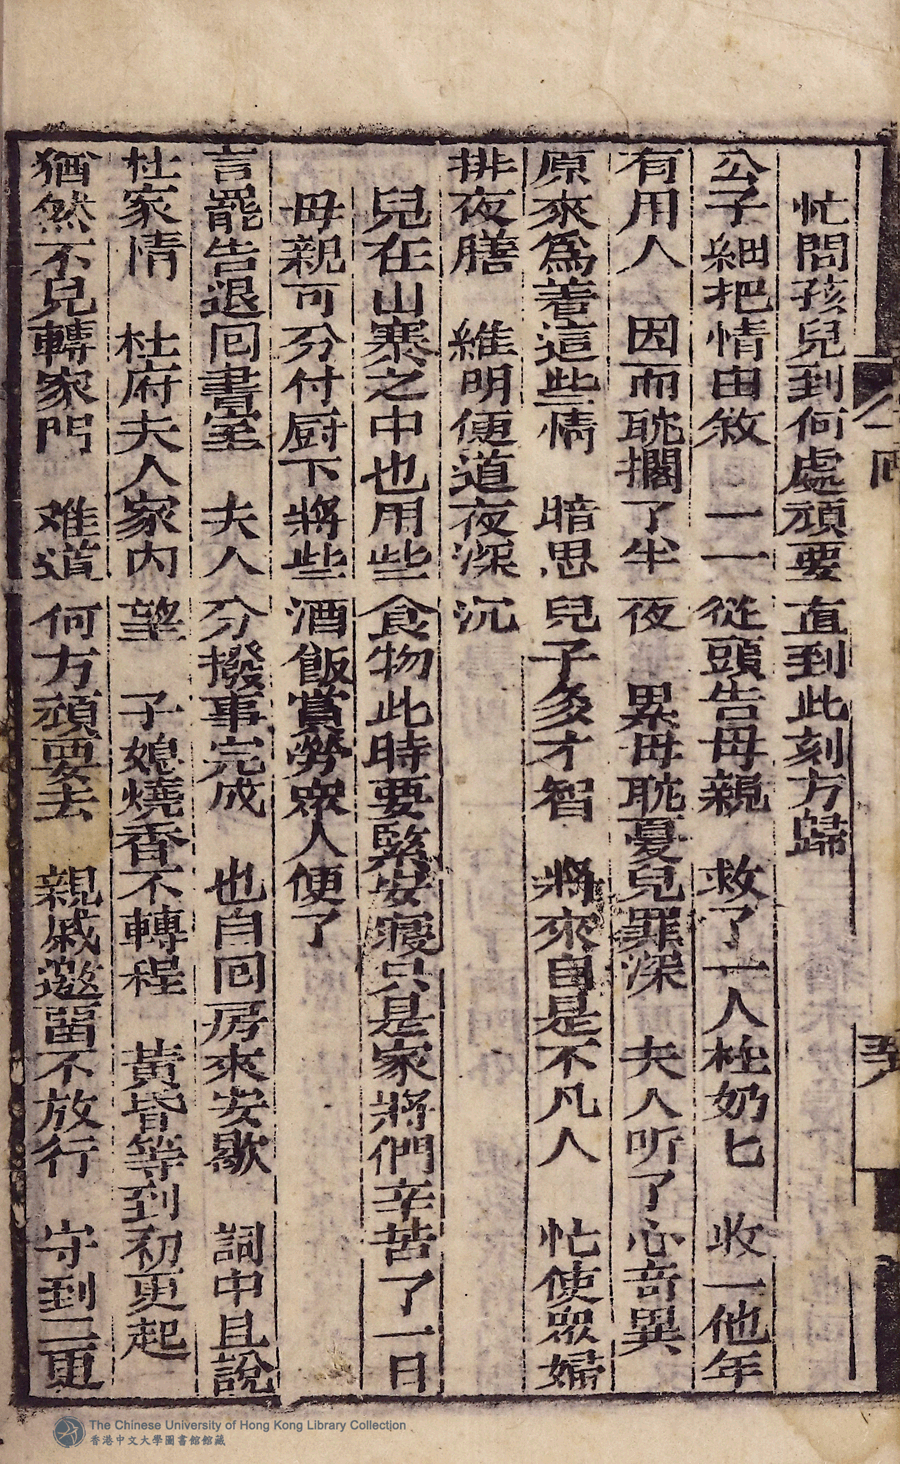 忙問孩兒到何處頑要　直到此刻方歸
公子細把情由敘　一一從頭告母親　救了一人杜奶匕　收一他年
有用人　因而耽擱了半夜　累母耽憂兒罪深　夫人听了心奇異
原來爲着這些情　暗思兒子多才智　將來自是不凡人　忙使眾婦
排夜膳　維明便道夜深沉
兒在山寨之中也用些食物此時要緊安寢只是家將們辛苦了一日
母親可分付厨下將些酒飯賞勞眾人便了
言罷告退囘書室　夫人分撥事完成　也自囘房來安歇　詞中且說
杜家情　杜府夫人家內望　子媳燒香不轉程　黃昏等到初更起
猶然不見轉家門　难道何方頑要去　親戚邀畱不放行　守到二更
The Chinese University of Hong Kong Library Collection
香港中文大學圖書館館藏